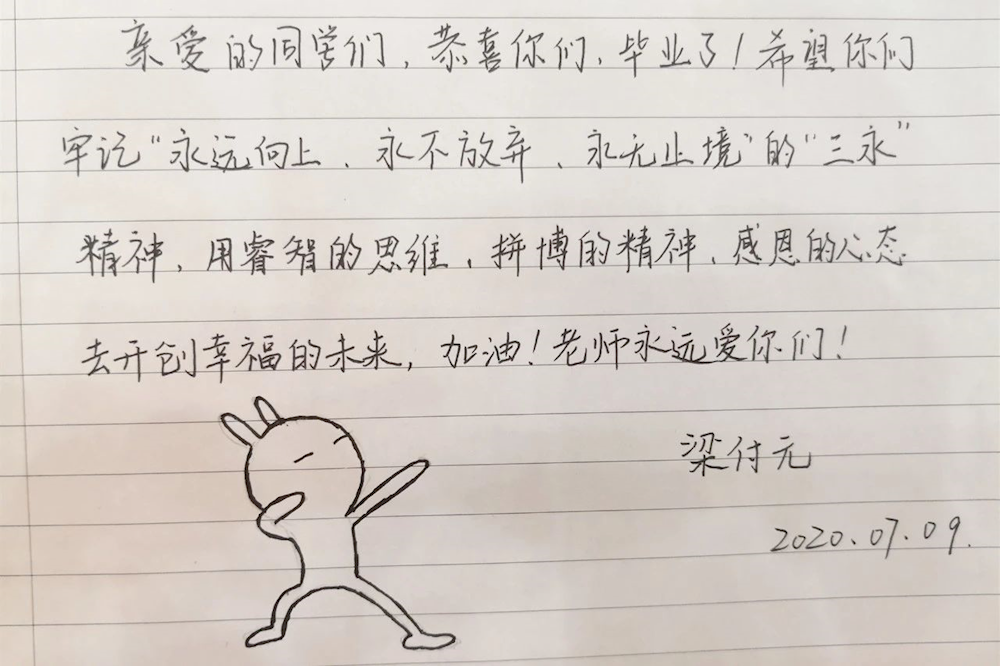 亲爱的同学们，恭喜你们，毕业了！希望你们
牢记“永远向上、永不放弃、永无止境”的“三永”
精神，用睿智的思维，拼博的精神，感恩的心态
去开创幸福的未来，加油！老师永远爱你们！
梁付元
2020.07.09.